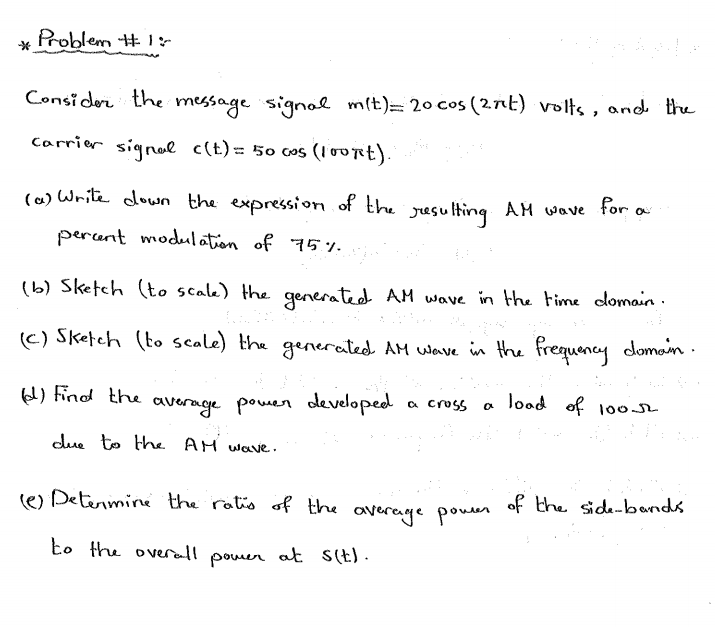 * Problem # 1:-
Consider the message signal m(t)= 20 cos (2πt) volts, and the
carrier signal c(t) = 50 cos (100πt).
(a) Write down the expression of the resulting AM wave for a
percent modulation of 75%.
(b) Sketch (to scale) the generated AM wave in the time domain.
(c) Sketch (to scale) the generated AM wave in the frequency domain.
(d) Find the average power developed a cross a load of 100Ω
due to the AM wave.
(e) Determine the ratio of the average power of the side-bands
to the overall power at S(t).